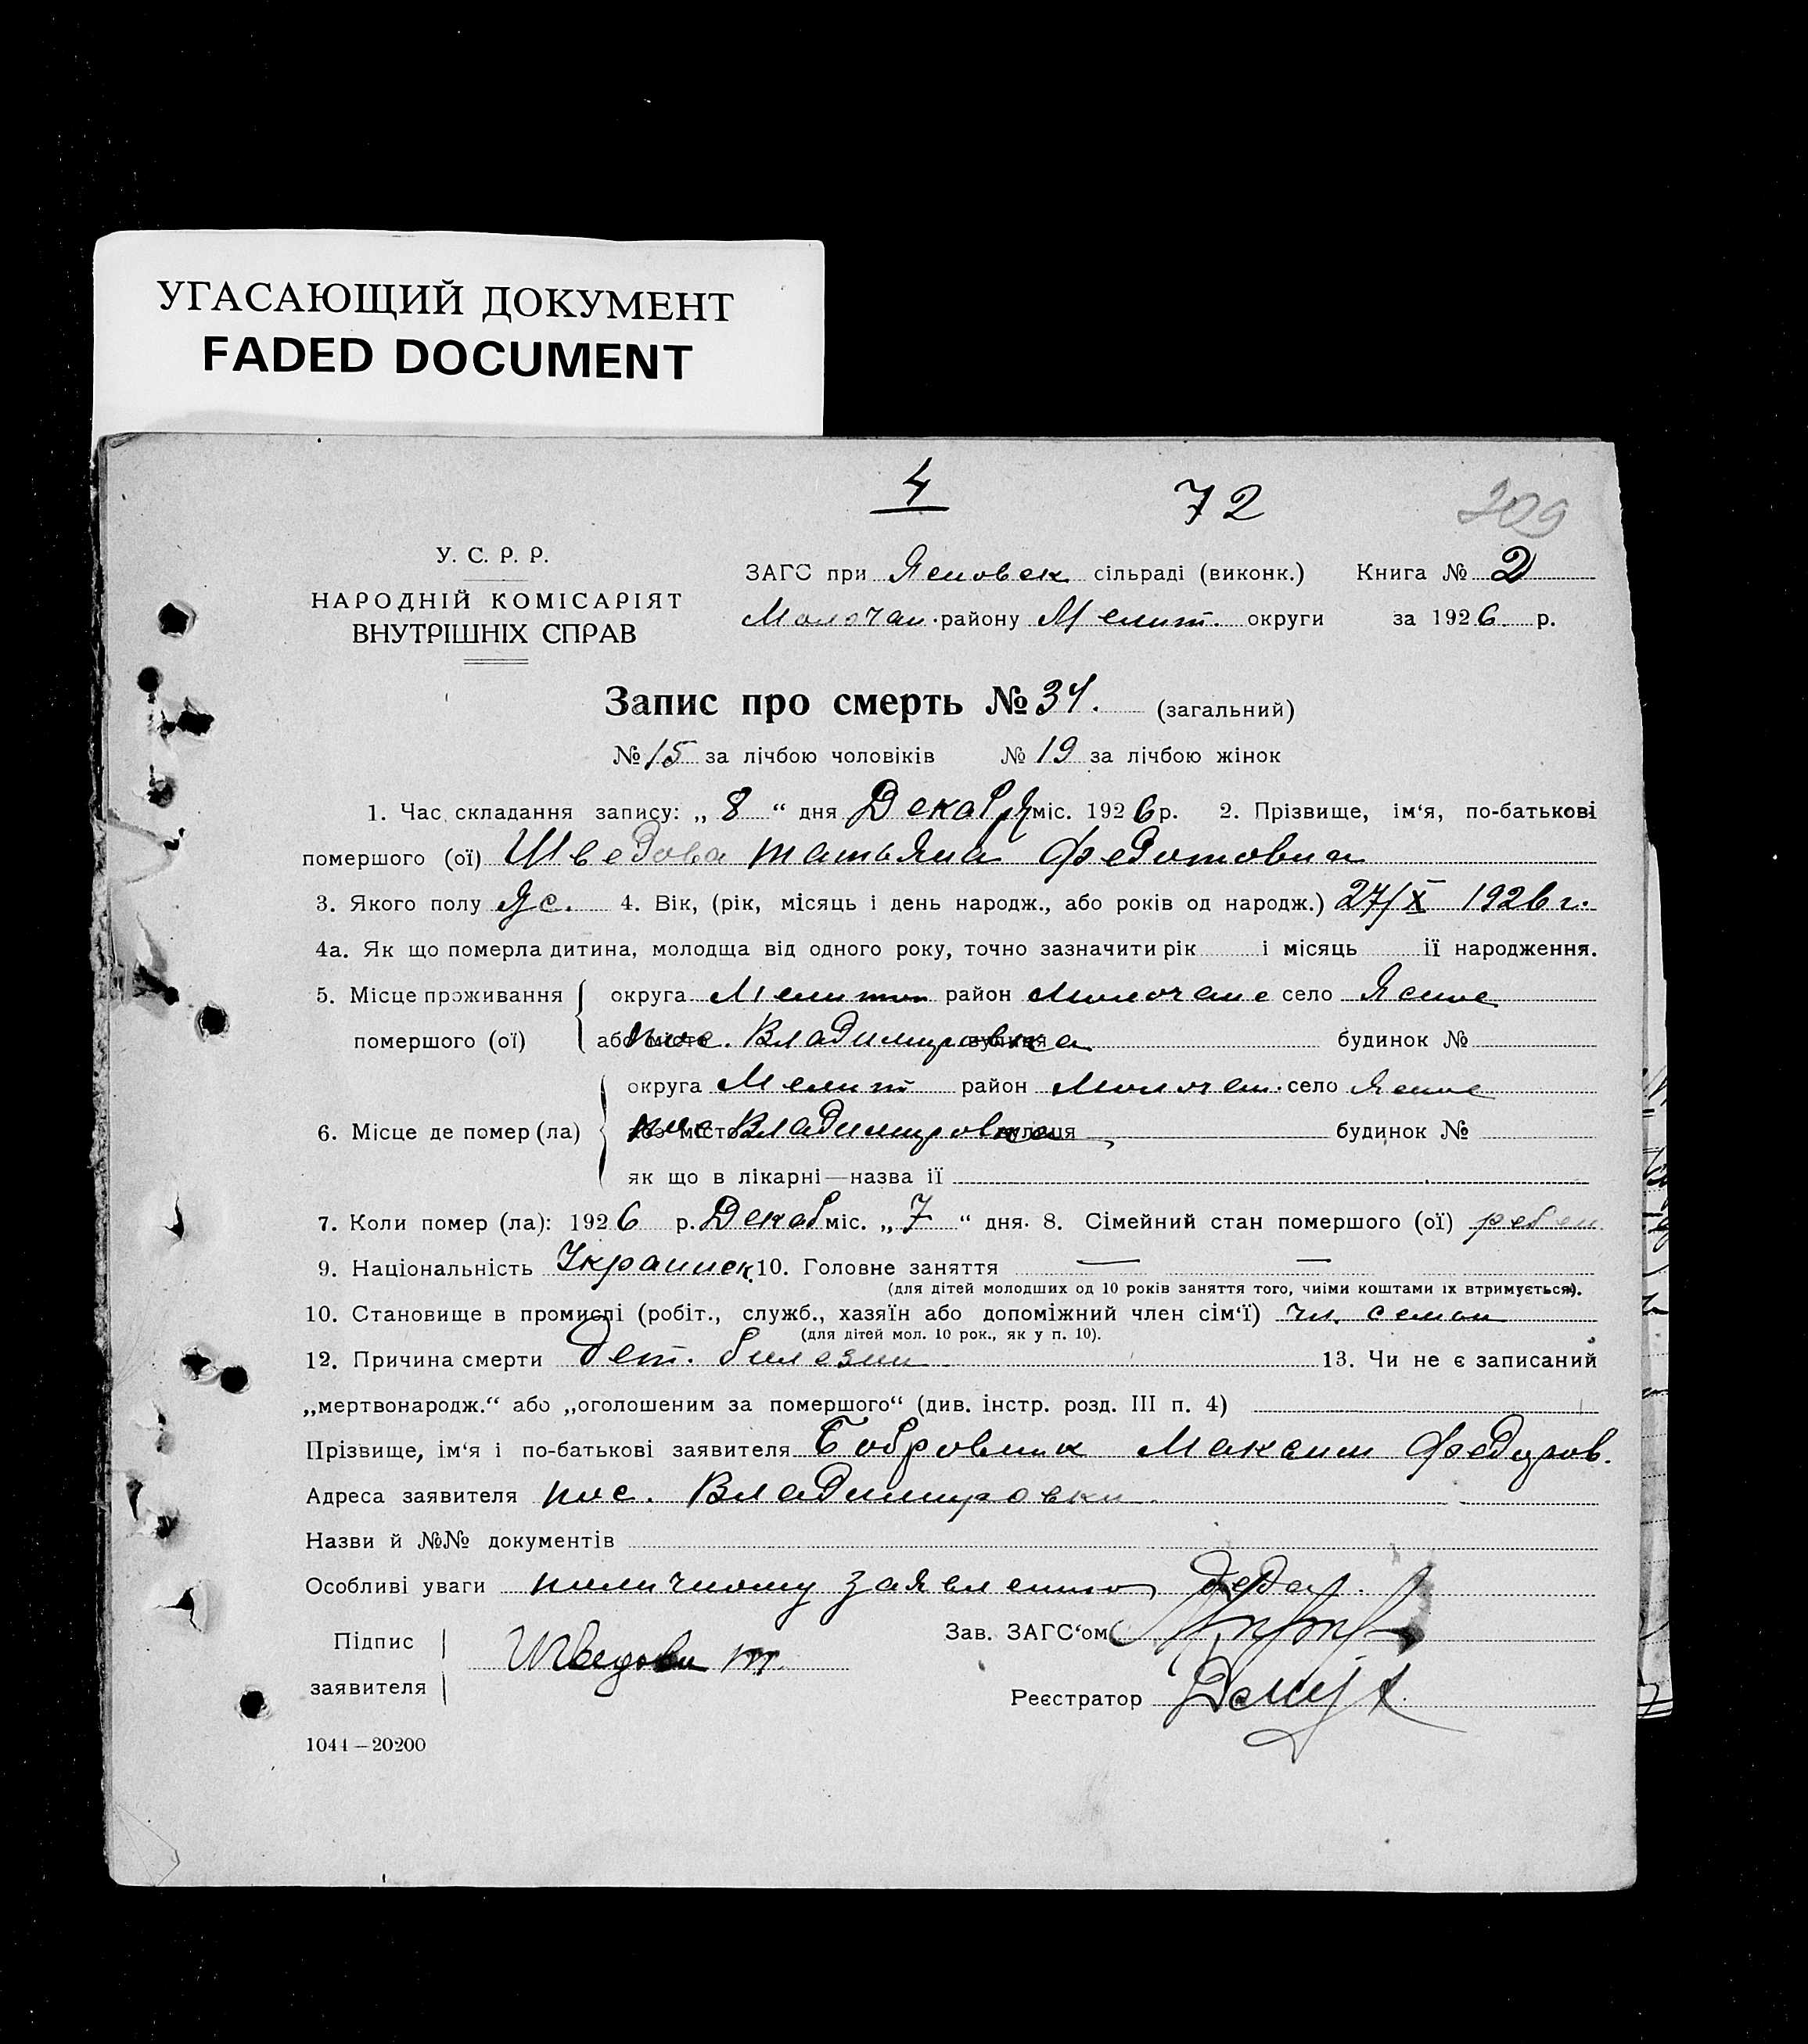 УГАСАЮЩИЙ ДОКУМЕНТ
FADED DOCUMENT
4
72
209
У. С. Р. Р.
НАРОДНІЙ КОМІСАРІЯТ
ВНУТРІШНІХ СПРАВ
ЗАГС при Ясновск сільраді (виконк.) Книга № 2
Молочан. району Мелит. округи за 1926 р.
Запис про смерть № 34. (загальний)
№ 15 за лічбою чоловіків № 19 за лічбою жінок
1. Час складання запису: „ 8 “ дня Декабря міс. 1926 р. 2. Прізвище, ім‘я, по-батькові
помершого (ої) Шведова Татьяна Федотовна
3. Якого полу жс. 4. Вік, (рік, місяць і день народж., або років од народж.) 27/X 1926 г.
4а. Як що померла дитина, молодша від одного року, точно зазначити рік і місяць її народження.
5. Місце проживання округа Мелитоп район Молочанс село Ясное
помершого (ої) або місто пос. Владимировка вулиця будинок №
округа Мелит район Молочан. село Ясное
6. Місце де помер (ла) або місто пос Владимировка вулиця будинок №
як що в лікарні—назва її
7. Коли помер (ла): 1926 р. Декаб міс. „ 7 “ дня. 8. Сімейний стан помершого (ої) ребен
9. Національність Украинск 10. Головне заняття — —
(для дітей молодших од 10 років заняття того, чиїми коштами їх втримується).
10. Становище в промислі (робіт., служб., хазяїн або допоміжний член сім‘ї) чл. семьи
(для дітей мол. 10 рок., як у п. 10).
12. Причина смерти Дет. болезни 13. Чи не є записаний
„мертвонародж.“ або „оголошеним за помершого“ (див. інстр. розд. III п. 4)
Прізвище, ім‘я і по-батькові заявителя Бобровник Максим Федоров.
Адреса заявителя пос. Владимировки
Назви й №№ документів
Особливі уваги поличному заявлению деда
Підпис Шведова т. Зав. ЗАГС‘ом
заявителя
Реєстратор
1044—20200